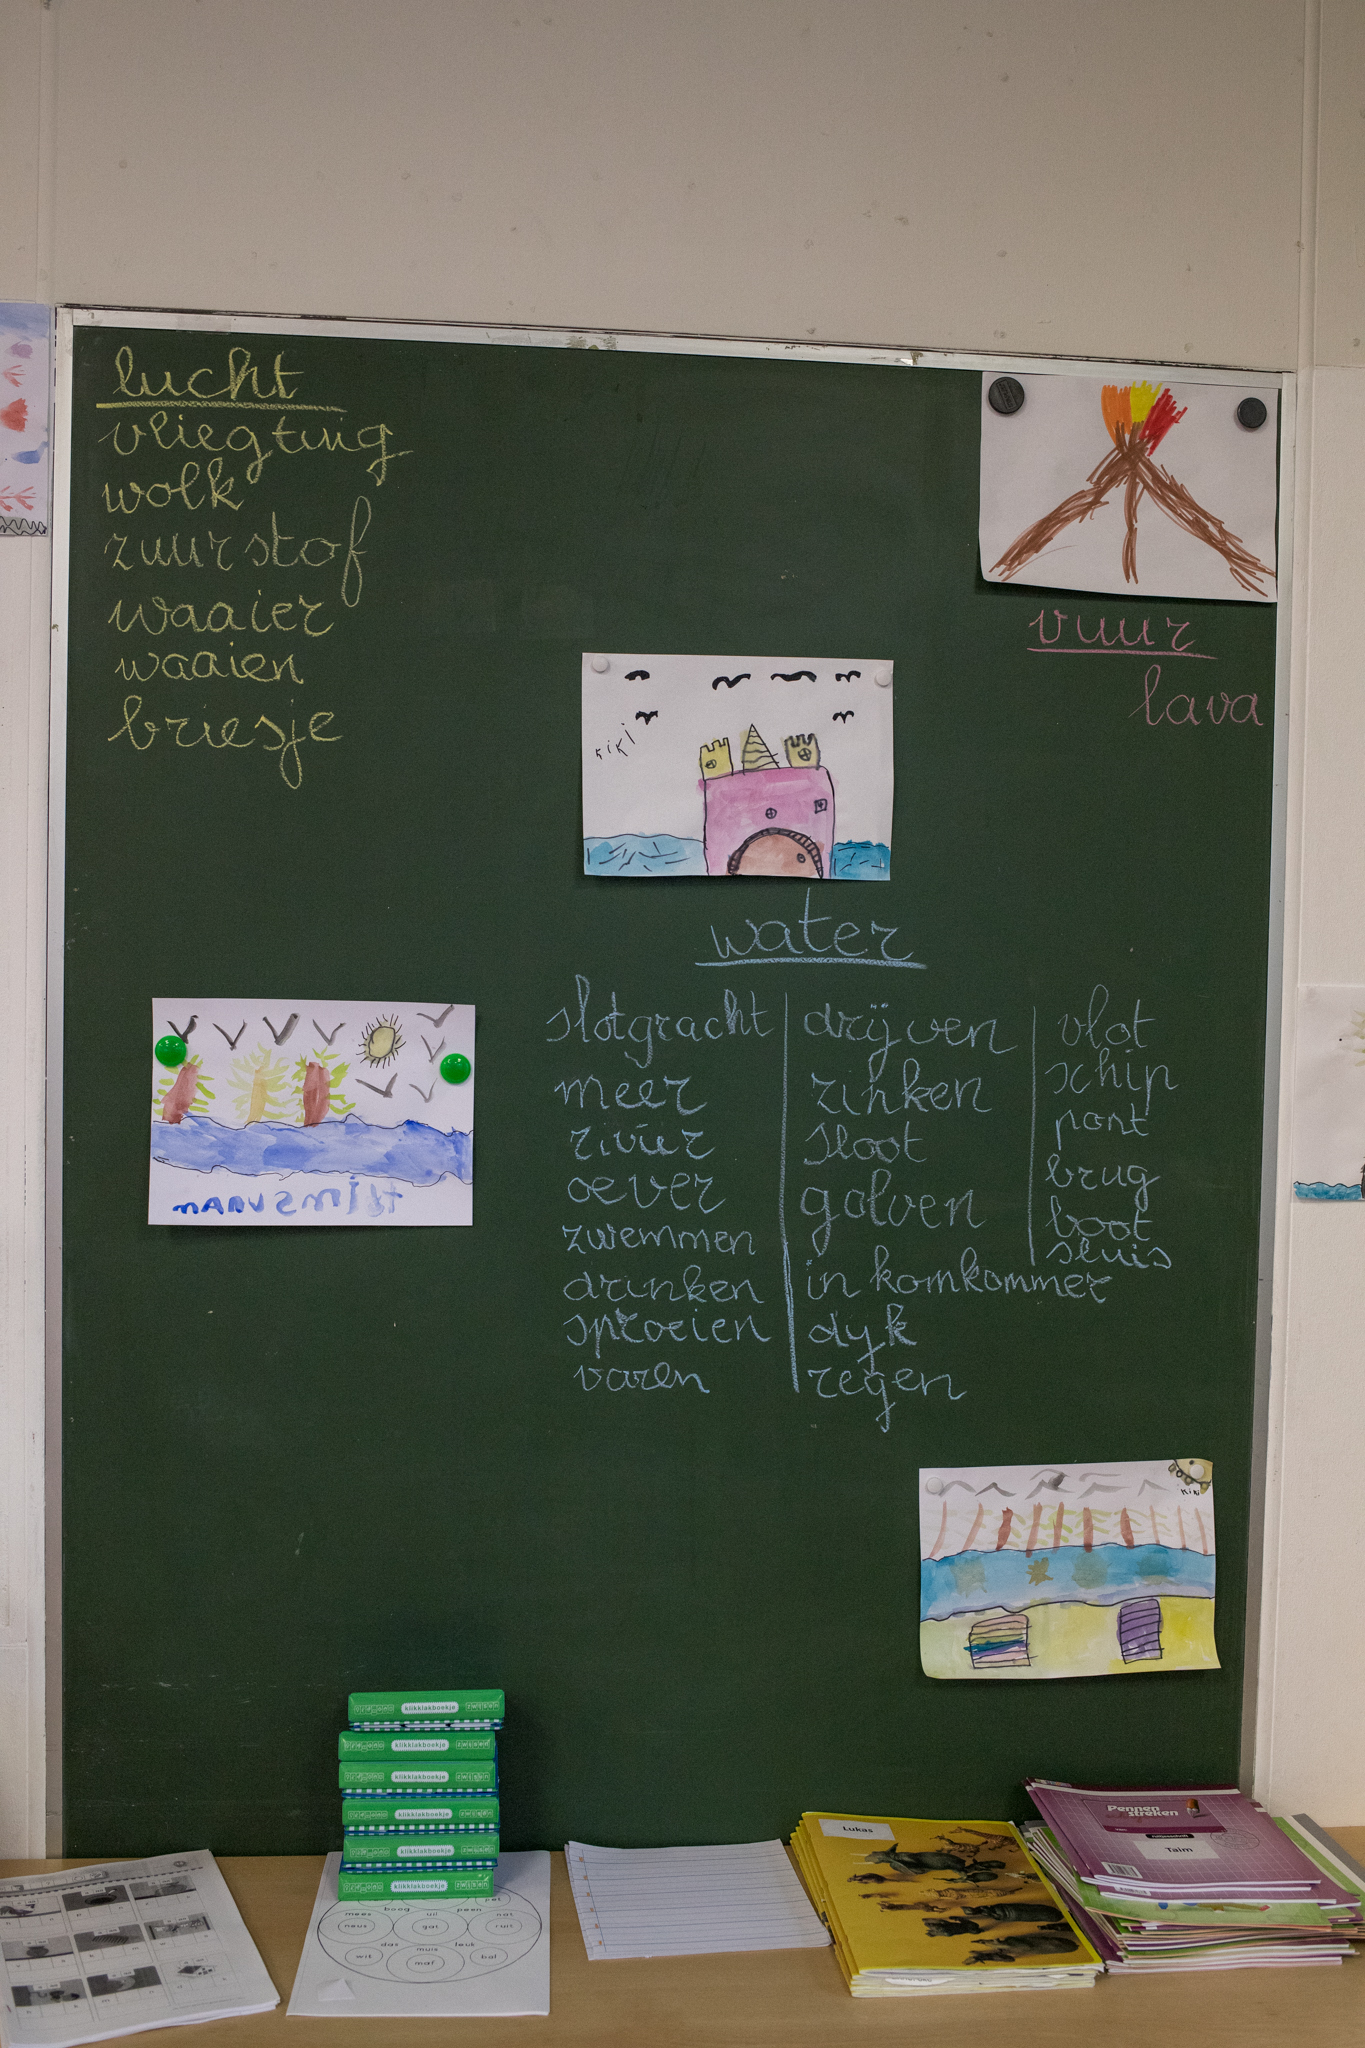 lucht
vliegtuig
wolk
zuurstof
waaier
waaien
briesje
vuur
lava
KIKI
water
slotgracht
meer
rivier
oever
zwemmen
drinken
sproeien
varen
drijven
zinken
sloot
golven
in komkommer
dyk
regen
vlot
schip
pont
brug
boot
sluis
KiKi
klikklakboekje
klikklakboekje
klikklakboekje
klikklakboekje
klikklakboekje
klikklakboekje
mees boog uil peen nat
neus gat ruit
das muis leuk
wit maf bal
Lukas
Pennen
streken
Taim